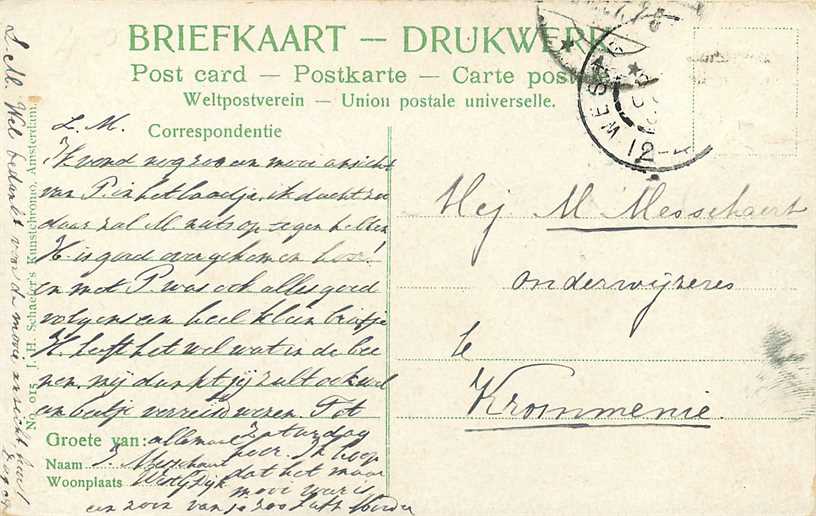 BRIEFKAART — DRUKWERK
Post card — Postkarte — Carte postale
Weltpostverein — Union postale universelle.
L. M.
Correspondentie
Ik vond nog zoo een mooi ansicht
van P. in het laadje, ik dacht zoo
daar zal M. niets op tegen hebben
H. is goed over gekomen hoor!
en met P. was ook alles goed
volgens een heel klein briefje
H. heeft het wel wat in de bee
nen, mij dunkt jij zult ook wel
een beetje verreisd wezen. Tot
Groete van: allemaal Zaturdag
hoor. Ik hoop
Naam J. Messchaert dat het mooi
Woonplaats mooi weer is
en zoo van je zoo
L. M. Wel bedankt voor de mooie ansicht
No. 015. J. H. Schaefer's Kunstchromo, Amsterdam.
WES
12-
Mej M. Messchaert
onderwijzeres
te
Krommenie.